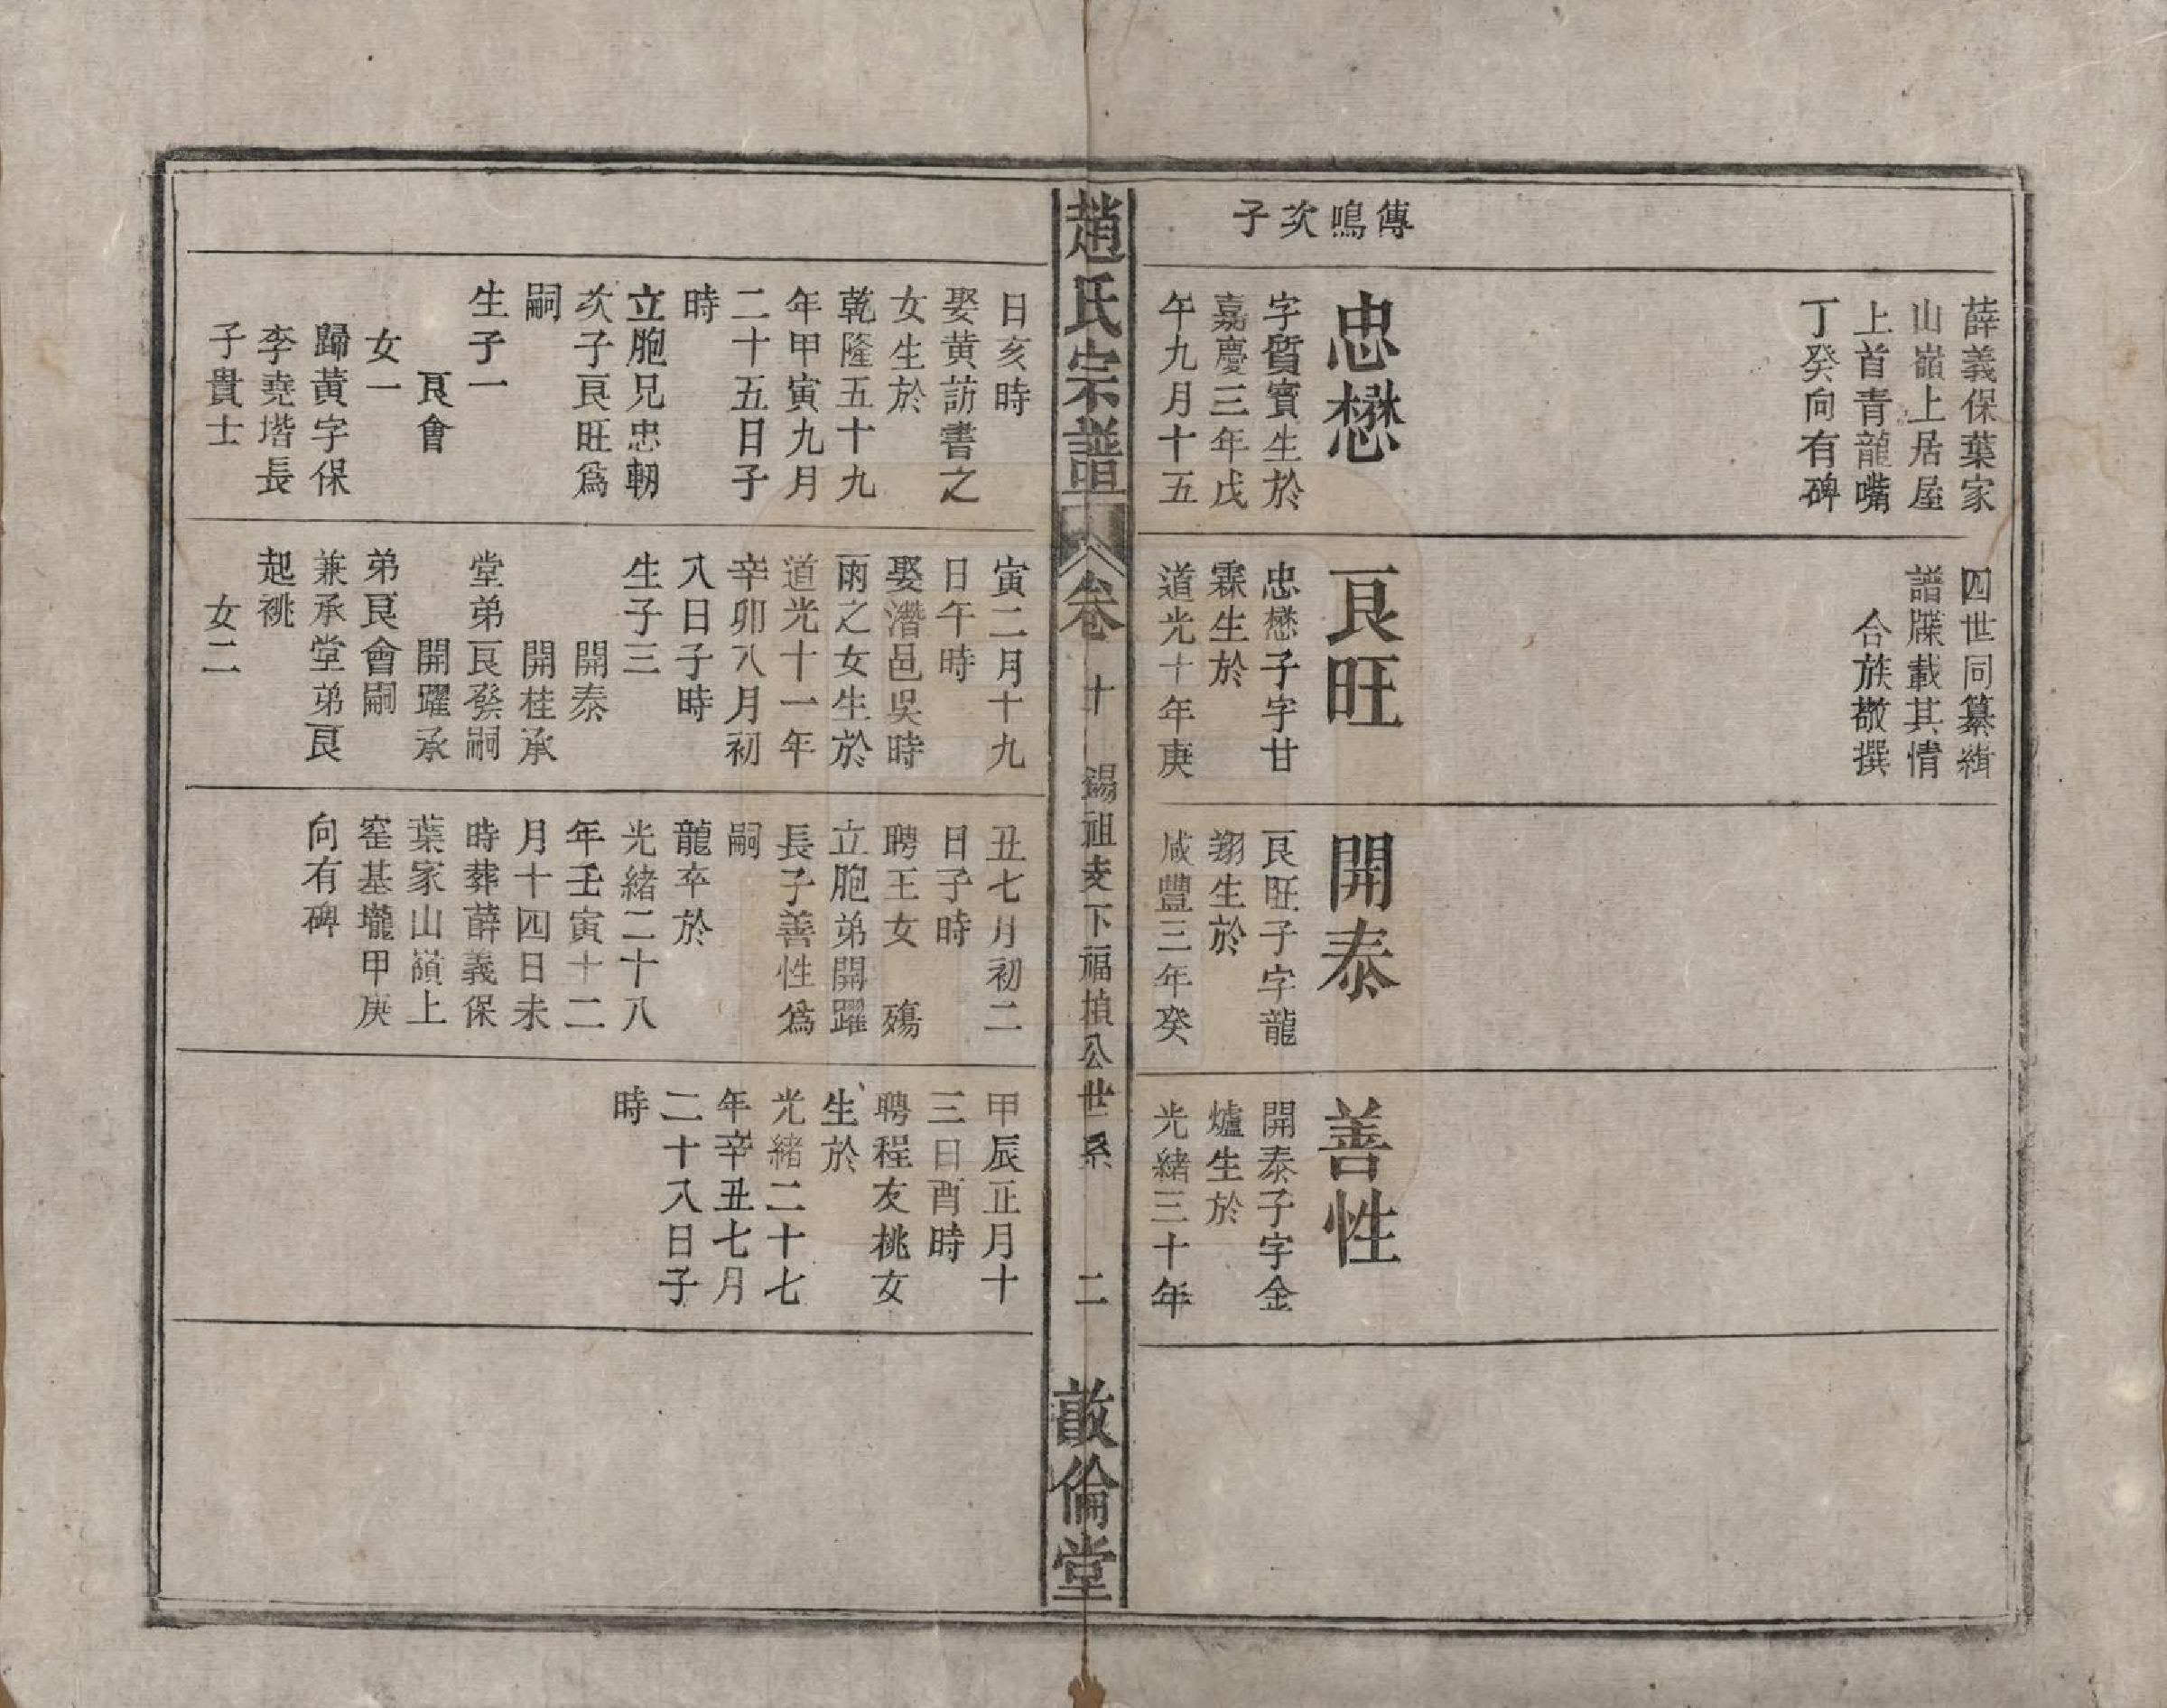 傳鳴次子
薛義保葉家
山嶺上居屋
上首青龍嘴
丁癸向有碑
忠懋
字質賓生於
嘉慶三年戊
午九月十五
四世同纂緝
譜牒載其情
合族敬撰
良旺
忠懋子字甘
霖生於
道光十年庚
開泰
良旺子字龍
翔生於
咸豐三年癸
善性
開泰子字金
爐生於
光緒三十年
趙氏宗譜
卷十
錫祖支下福楨公世系
二
敦倫堂
日亥時
娶黃訪書之
女生於
乾隆五十九
年甲寅九月
二十五日子
時
立胞兄忠朝
次子良旺爲
嗣
生子一
良會
女一
歸黃字保
李堯堦長
子貴士
寅二月十九
日午時
娶潛邑吳時
雨之女生於
道光十一年
辛卯八月初
八日子時
生子三
開泰
開桂承
堂弟良發嗣
開躍承
弟良會嗣
兼承堂弟良
起祧
女二
丑七月初二
日子時
聘王女 殤
立胞弟開躍
長子善性爲
嗣
龍卒於
光緒二十八
年壬寅十二
月十四日未
時葬薛義保
葉家山嶺上
窑基壠甲庚
向有碑
甲辰正月十
三日酉時
聘程友桃女
生於
光緒二十七
年辛丑七月
二十八日子
時